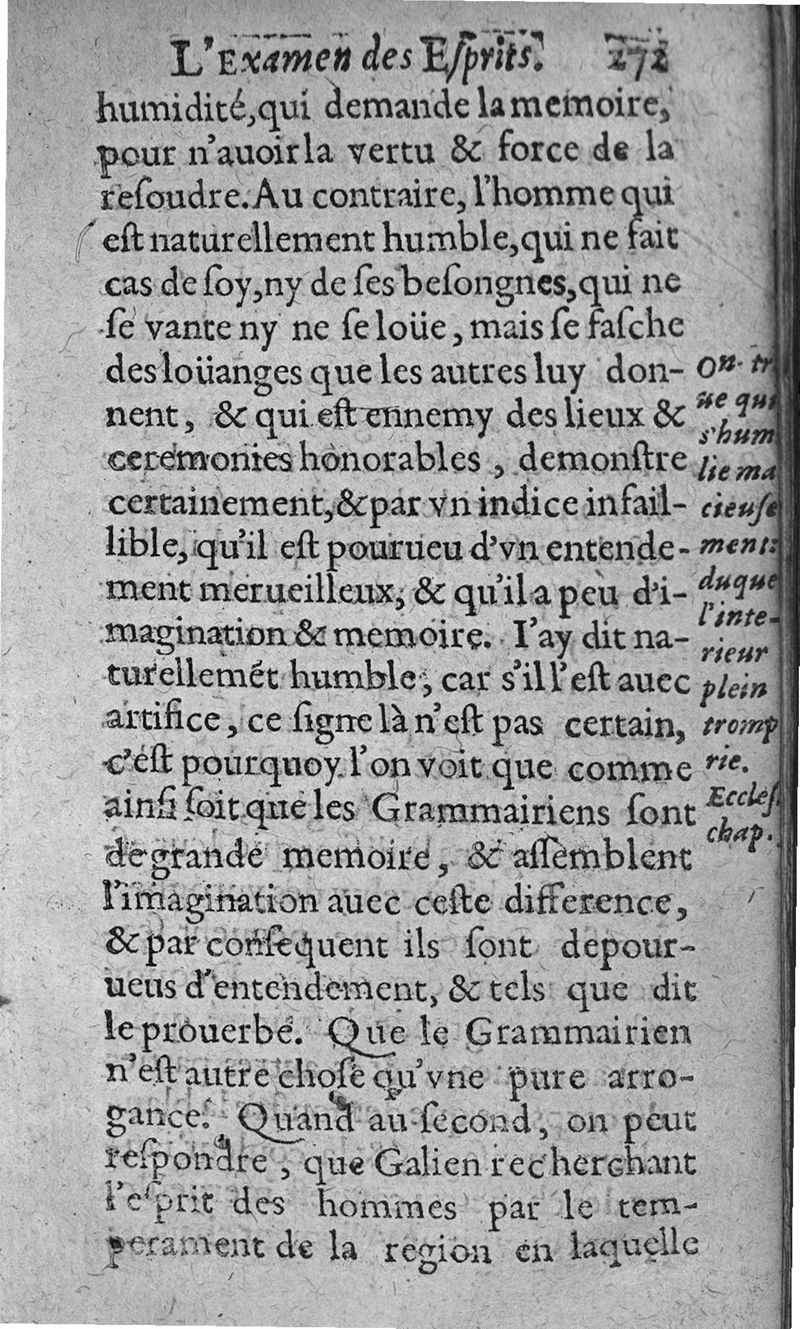 L'Examen des Eſprits. 272
humidité, qui demande la memoire,
pour n'auoir la vertu & force de la
reſoudre. Au contraire, l'homme qui
eſt naturellement humble, qui ne fait
cas de ſoy, ny de ſes beſongnes, qui ne
ſe vante ny ne ſe loüe, mais ſe faſche
des loüanges que les autres luy don-
nent, & qui eſt ennemy des lieux &
ceremonies honorables, demonſtre
certainement, & par vn indice infail-
lible, qu'il eſt pourueu d'vn entende-
ment merueilleux, & qu'il a peu d'i-
magination & memoire. I'ay dit na-
turellemẽt humble, car s'il l'eſt auec
artifice, ce ſigne là n'eſt pas certain,
c'eſt pourquoy l'on voit que comme
ainſi ſoit que les Grammairiens ſont
de grande memoire, & aſſemblent
l'imagination auec ceſte difference,
& par conſequent ils ſont depour-
ueus d'entendement, & tels que dit
le prouerbe. Que le Grammairien
n'eſt autre choſe qu'vne pure arro-
gance. Quand au ſecond, on peut
reſpondre, que Galien recherchant
l'eſprit des hommes par le tem-
perament de la region en laquelle
On tr
ue qui
s'hum
lie ma
cieuſe
ment:
duque
l'inte-
rieur
plein
tromp
rie.
Eccleſ.
chap.